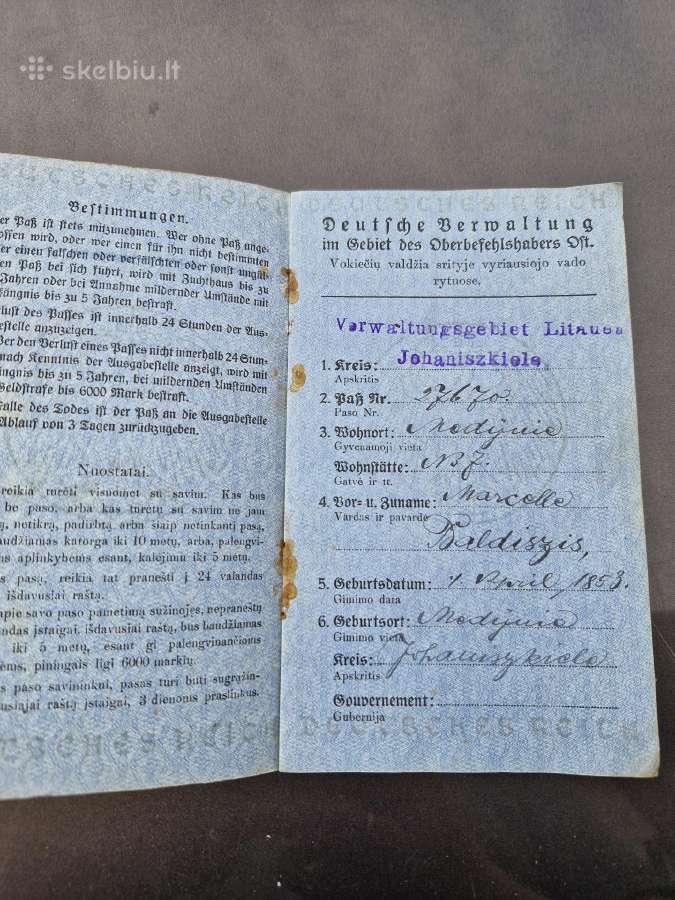 skelbiu.lt
DEUTSCHES REICH
Bestimmungen.
er Paß ist stets mitzunehmen. Wer ohne Paß ange-
offen wird, oder wer einen für ihn nicht bestimmten
er einen falschen oder verfälschten oder sonst ungül-
en Paß bei sich führt, wird mit Zuchthaus bis zu
Jahren oder bei Annahme mildernder Umstände mit
fängnis bis zu 5 Jahren bestraft.
rlust des Passes ist innerhalb 24 Stunden der Aus-
bestelle anzuzeigen.
er den Verlust eines Passes nicht innerhalb 24 Stun-
nach Kenntnis der Ausgabestelle anzeigt, wird mit
ngnis bis zu 5 Jahren, bei mildernden Umständen
Geldstrafe bis 6000 Mark bestraft.
alle des Todes ist der Paß an die Ausgabestelle
Ablauf von 3 Tagen zurückzugeben.
Nuostatai.
reikia turėti visuomet su savim. Kas bus
be paso, arba kas turėtų su savim ne jam
ą, notikrą, padirbtą arba šiaip netinkantį pasą,
audžiamas katorga iki 10 metų, arba, palengvi-
ms aplinkybėms esant, kalėjimu iki 5 metų.
s pasą, reikia tat pranešti į 24 valandas
išdavusiai raštą.
apie savo paso pametimą sužinojęs, nepraneštų
ndas įstaigai, išdavusiai raštą, bus baudžiamas
iki 5 metų, esant gi palengvinančioms
ėms, piningais ligi 6000 markių.
s paso savininkui, pasas turi būti sugrąžin-
usiajai raštą įstaigai, 3 dienoms praslinkus.
DEUTSCHES REICH
DEUTSCHES REICH
Deutsche Verwaltung
im Gebiet des Oberbefehlshabers Ost.
Vokiečių valdžia srityje vyriausiojo vado
rytuose.
Verwaltungsgebiet Litaue
1. Kreis: Johaniszkiele
Apskritis
2. Paß Nr. 27670.
Paso Nr.
3. Wohnort: Medijnie
Gyvenamoji vieta
Wohnstätte: No 7.
Gatvė ir tt.
4. Vor- u. Zuname: Marcelle
Vardas ir pavardė
Baldiszis,
5. Geburtsdatum: 1. April, 1853.
Gimimo data
6. Geburtsort: Medijnie
Gimimo vieta
Kreis: Johaniszkiele
Apskritis
Gouvernement:
Gubernija
DEUTSCHES REICH